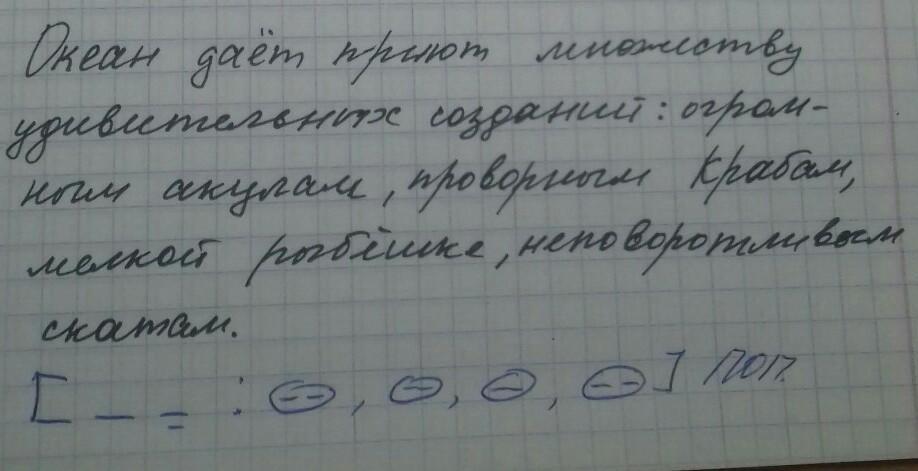 Океан даёт приют множеству
удивительных созданий: огром-
ным акулам, проворным крабам,
мелкой рыбёшке, неповоротливым
скатам.
[ _ = : (--), (-), (-), (--) ] ПОП.